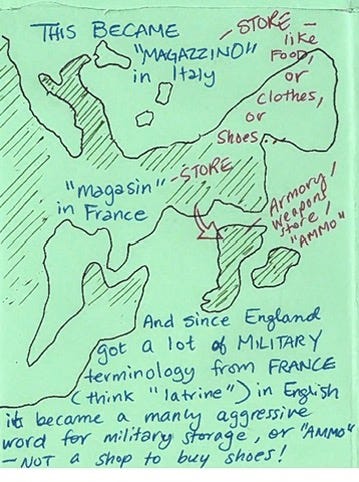 THIS BECAME
"MAGAZZINO"
in Italy
- STORE -
like
FOOD,
or
clothes,
or
Shoes...
"magasin" - STORE
in France
Armory/
weapons
store/
"AMMO"
And since England
got a lot of MILITARY
terminology from FRANCE
(think "latrine") in English
it became a manly aggressive
word for military storage, or "AMMO"
- NOT a shop to buy shoes!